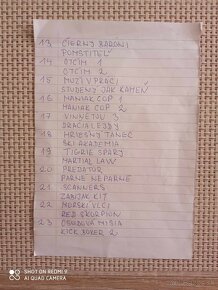 13 ČIERNY BARÓNI
POMSTITEĽ
14 OTČIM 1
OTČIM 2
15 MUŽI V PRÁCI
STUDENÝ JAK KAMEŇ
16 MANIAK COP 1
MANIAK COP 2
17 VINNETOU 3
DRACIA LEJDY
18 HRIEŠNY TANEC
SKI AKADEMIA
19 TIGRIE SPÁRY
MARTIAL LAW
20 PREDÁTOR
PARNE NEPARNE
21 SCANNERS
ZABIJAK KIT
22 MORSKI VLCI
RED SKORPION
23 OSUDOVÁ MISIA
KICK BOXER 2
SHOT ON REDMI 9